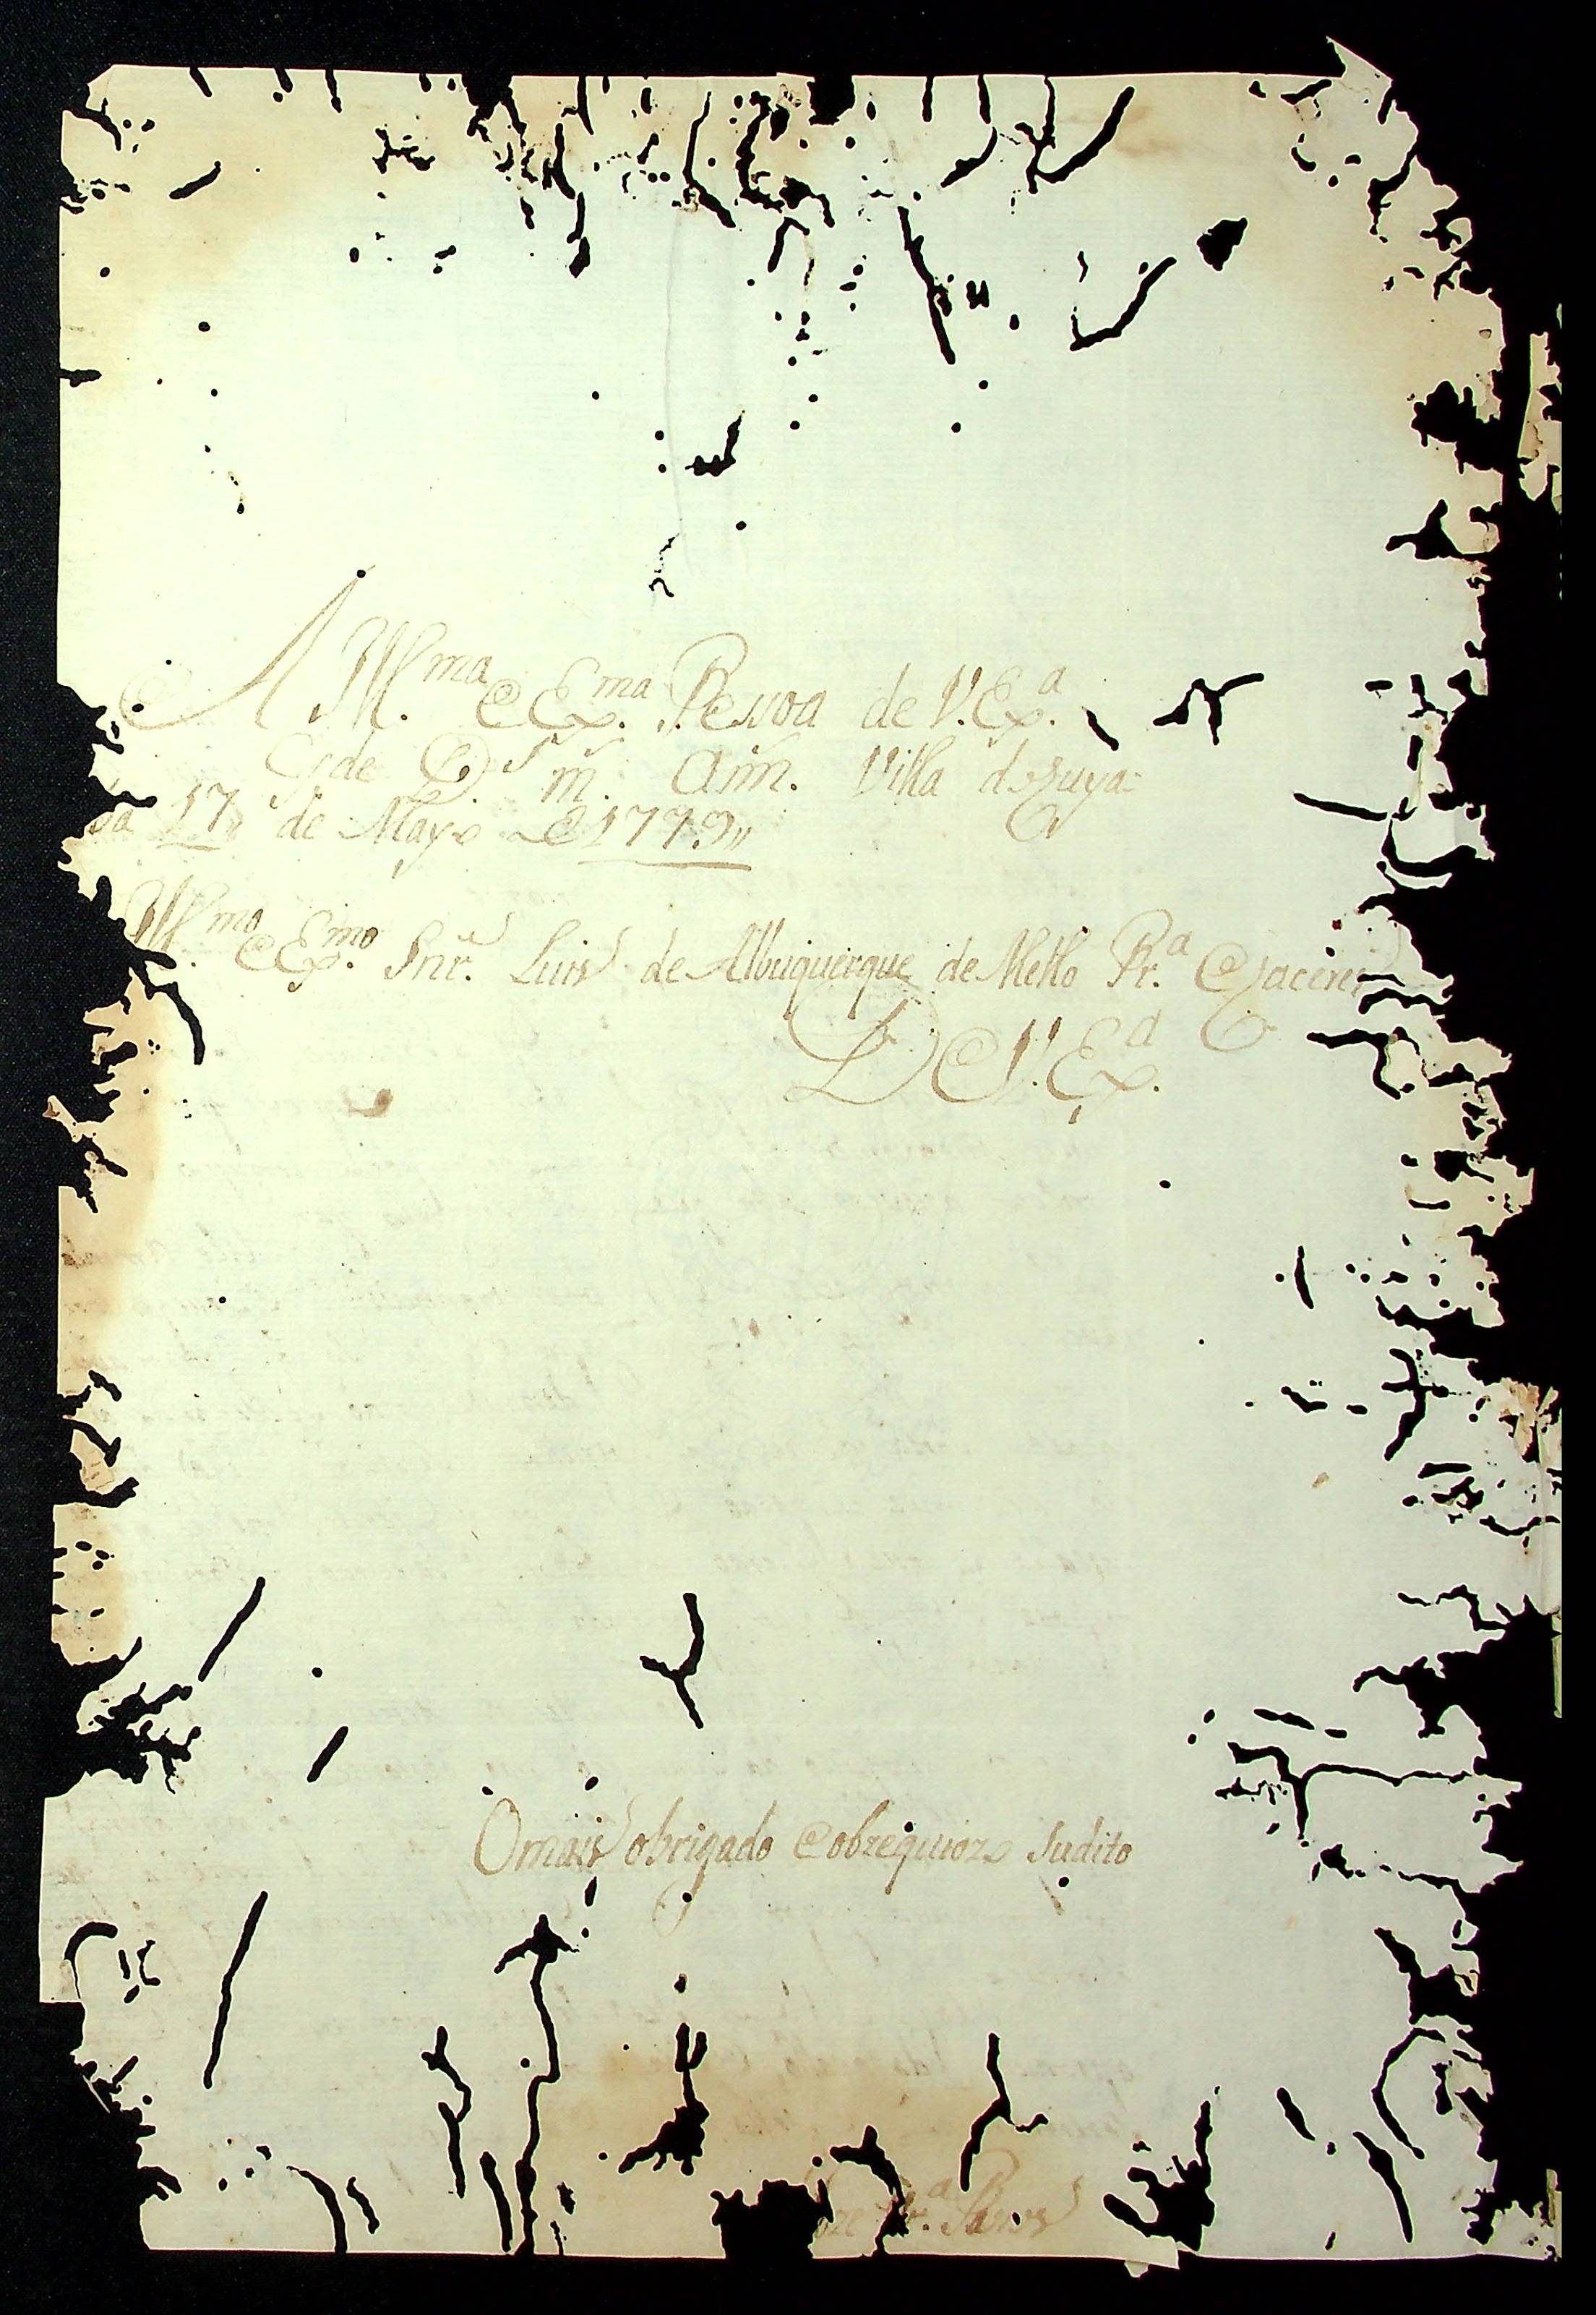 A Ill.ma e Ex.ma Pessoa de V. Ex.a
G.de D.s m. ann. Villa do Cuya
ba 17 de Mayo de 1779
Ill.mo e Ex.mo Snr. Luis de Albuquerque de Mello Pr.a e Caceres
De V. Ex.a
O mais obrigado e obzequiozo Sudito
Joze Pr.a